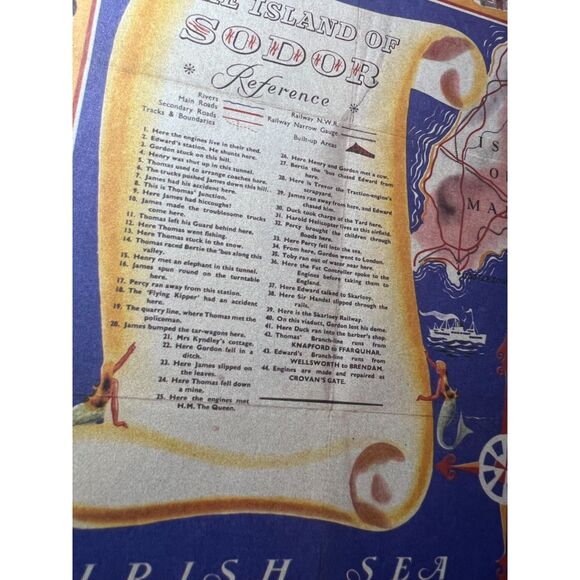 ISLAND OF
SODOR
Reference
Rivers
Main Roads
Secondary Roads
Tracks & Boundaries
Railway N.W.R.
Railway Narrow Gauge
Built-up Areas
1. Here the engines live in their shed.
2. Edward's station. He shunts here.
3. Gordon stuck on this hill.
4. Henry was shut up in this tunnel.
5. Thomas used to arrange coaches here.
6. The trucks pushed James down this hill.
7. James had his accident here.
8. This is Thomas' Junction.
9. Here James had hiccoughs?
10. James made the troublesome trucks
come here.
11. Thomas left his Guard behind here.
12. Here Thomas went fishing.
13. Here Thomas stuck in the snow.
14. Thomas raced Bertie the 'bus along this
valley.
15. Henry met an elephant in this tunnel.
16. James spun round on the turntable
here.
17. Percy ran away from this station.
18. The 'Flying Kipper' had an accident
here.
19. The quarry line, where Thomas met the
policeman.
20. James bumped the tar-wagons here.
21. Mrs Kyndley's cottage.
22. Here Gordon fell in a
ditch.
23. Here James slipped on
the leaves.
24. Here Thomas fell down
a mine.
25. Here the engines met
H.M. The Queen.
26. Here Henry and Gordon met a cow.
27. Bertie the 'bus chased Edward from
here.
28. Here is Trevor the Traction-engine's
scrapyard.
29. James ran away from here, and Edward
chased him.
30. Duck took charge at the Yard here.
31. Harold Helicopter lives at this airfield.
32. Percy brought the children through
floods here.
33. Here Percy fell into the sea.
34. From here, Gordon went to London.
35. Toby ran out of water near here.
36. Here the Fat Controller spoke to the
Engines before taking them to
England.
37. Here Edward talked to Skarloey.
38. Here Sir Handel slipped through the
rails.
39. Here is the Skarloey Railway.
40. On this viaduct, Gordon lost his dome.
41. Here Duck ran into the barber's shop.
42. Thomas' Branch-line runs from
KNAPFORD to FFARQUHAR.
43. Edward's Branch-line runs from
WELLSWORTH to BRENDAM.
44. Engines are made and repaired at
CROVAN'S GATE.
I S
O
M A
IRISH SEA